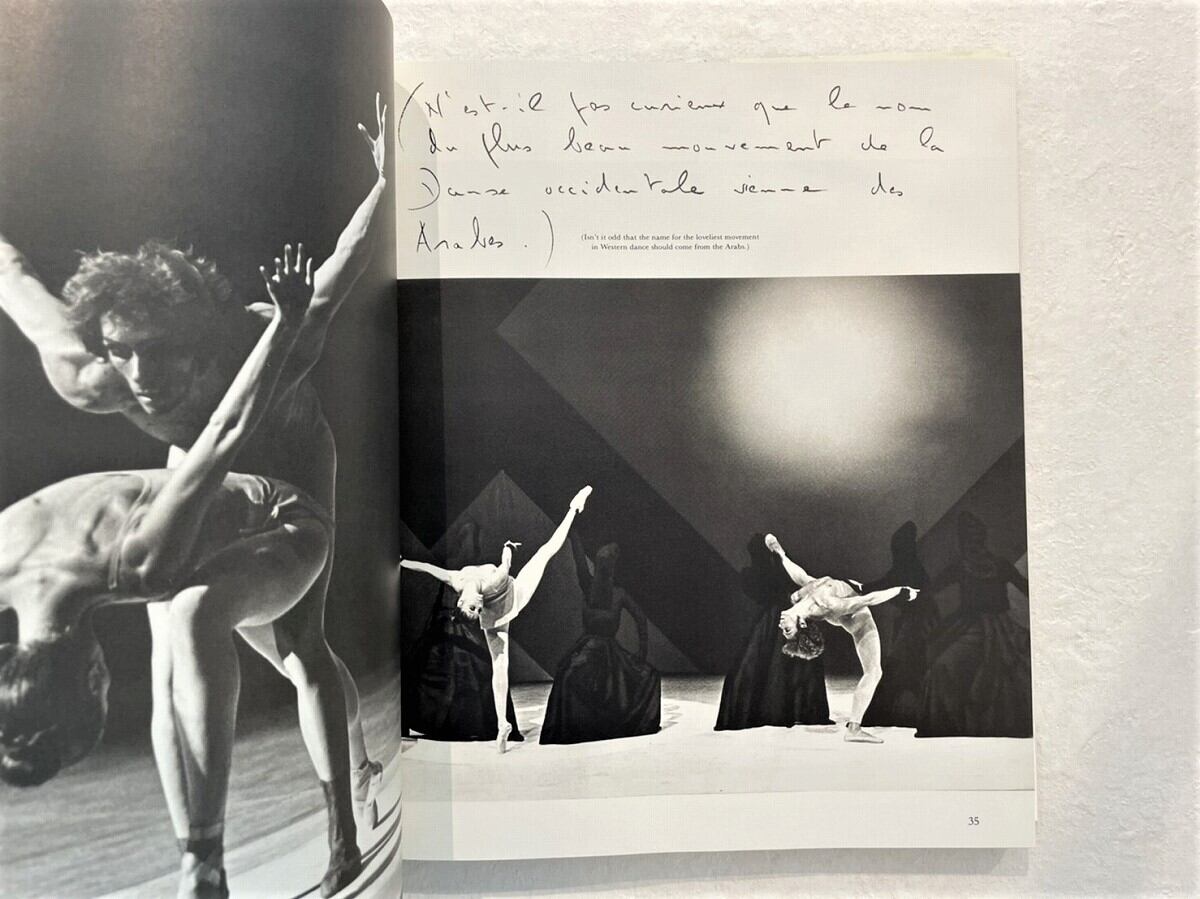 (N'est-il pas curieux que le nom
du plus beau mouvement de la
Danse occidentale vienne des
Arabes.)
(Isn't it odd that the name for the loveliest movement
in Western dance should come from the Arabs.)
35